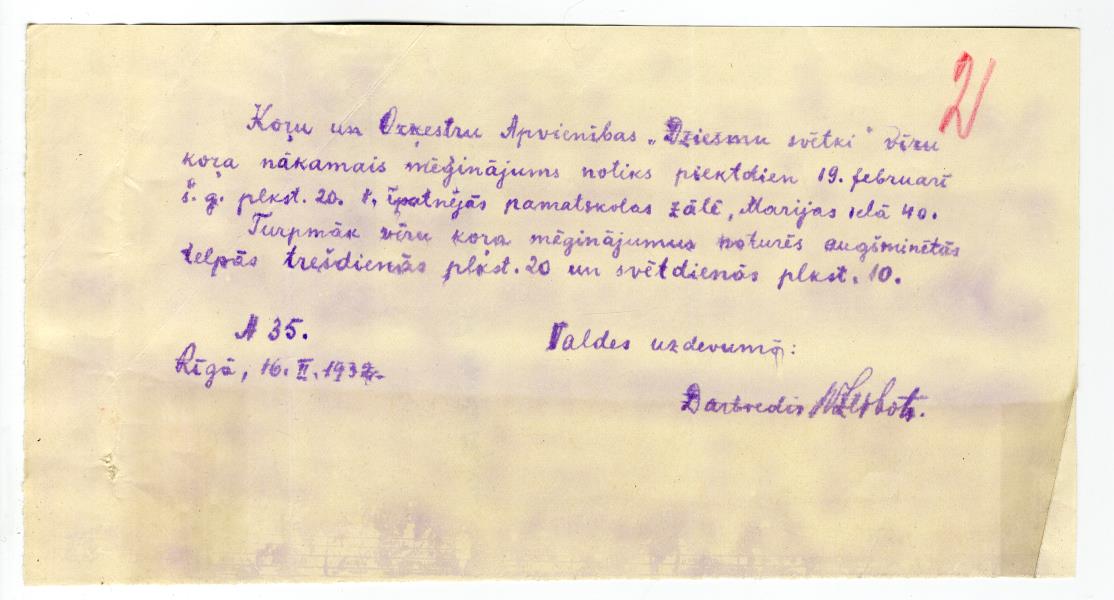 21
Koŗu un Orķestru Apvienības „Dziesmu svētki" vīru
koŗa nākamais mēģinājums notiks piektdien 19. februarī
š. g. plkst. 20. 8. īpatnējās pamatskolas zālē, Marijas ielā 40.
Turpmāk vīru koŗa mēģinājumus noturēs augšminētās
telpās trešdienās plkst. 20 un svētdienās plkst. 10.
N 35.
Valdes uzdevumā:
Rīgā, 16. II. 1932.
Darbvedis